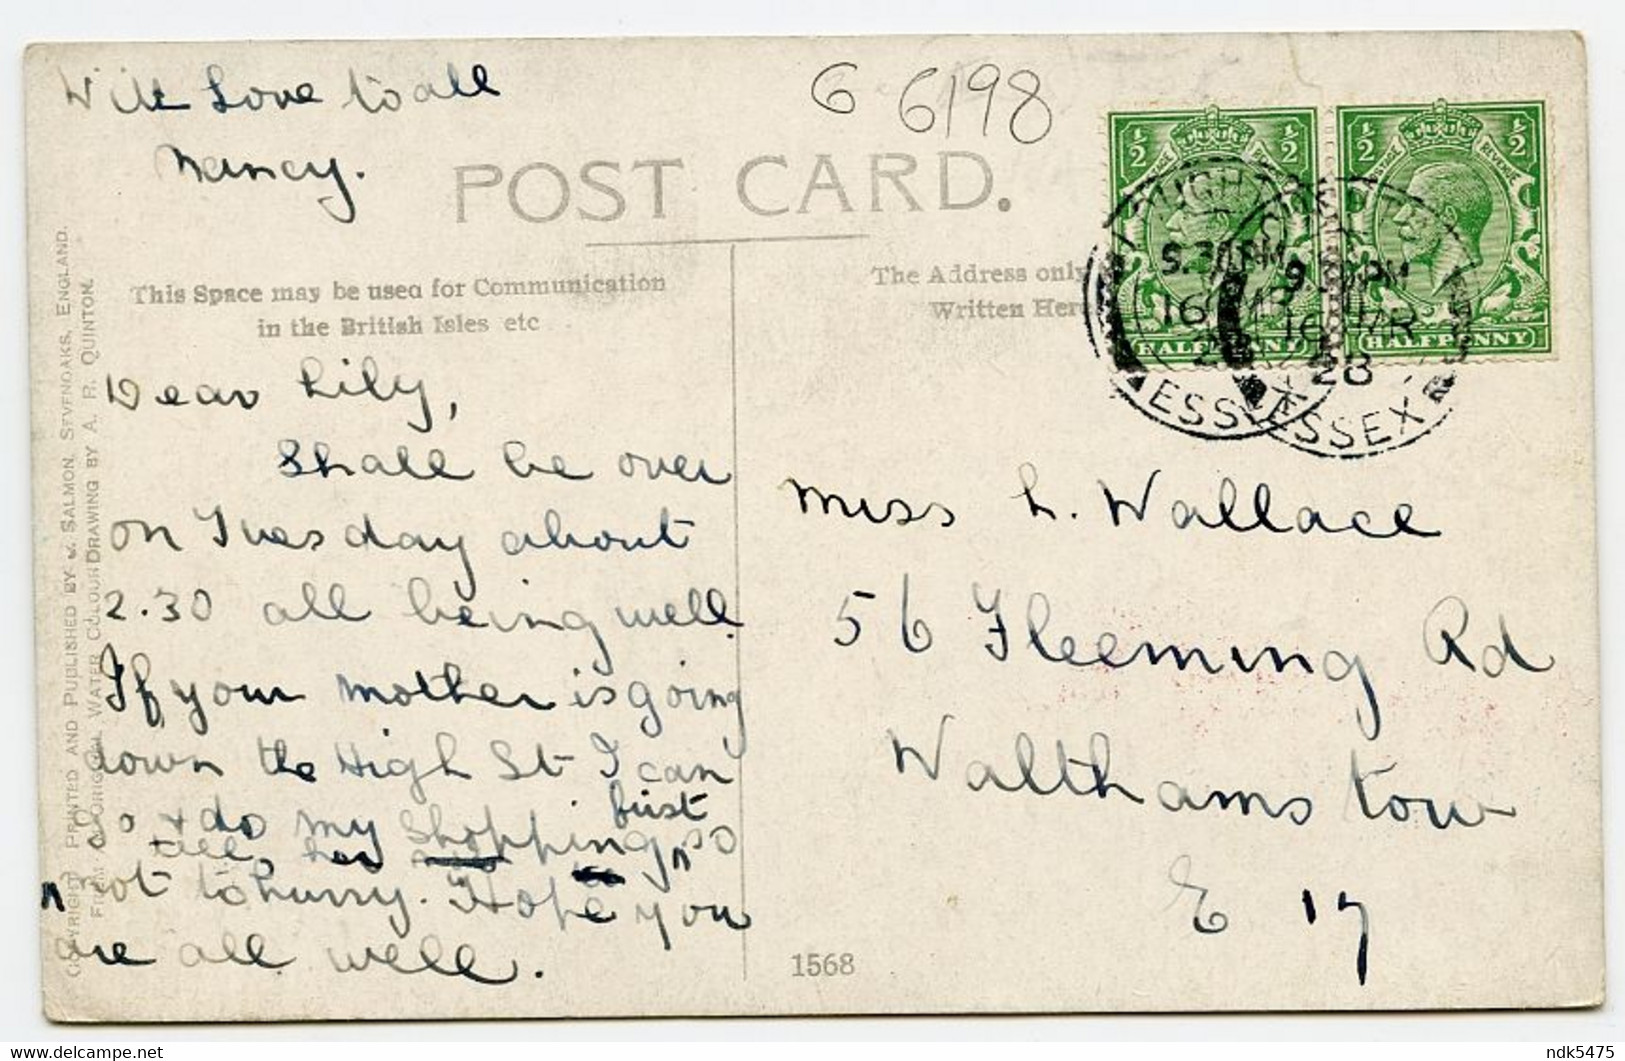 With Love to all
Nancy.
G 6198
POST CARD.
This Space may be used for Communication
in the British Isles etc
The Address only
Written Here
½ ½
POSTAGE REVENUE
HALFPENNY
½ ½
POSTAGE REVENUE
HALFPENNY
LOUGHTON
9.30PM
16 MR
28
ESSEX
9.30PM
16 MR
28
ESSEX
Dear Lily,
Shall be over
on Tuesday about
2.30 all being well.
If your mother is going
down the High St I can
go & do my shopping first so
tell her
not to hurry. Hope you
are all well.
Miss L. Wallace
56 Fleeming Rd
Walthamstow
E 17
1568
COPYRIGHT PRINTED AND PUBLISHED BY J. SALMON, SEVENOAKS, ENGLAND.
FROM AN ORIGINAL WATER COLOUR DRAWING BY A. R. QUINTON.
delcampe.net
ndk5475